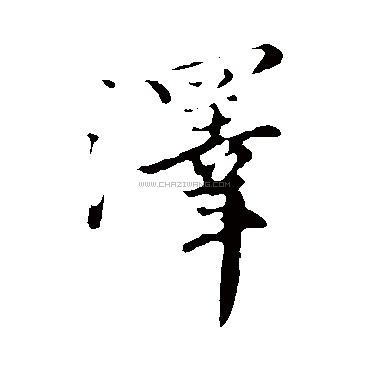 澤
WWW.CHAZIWANG.COM